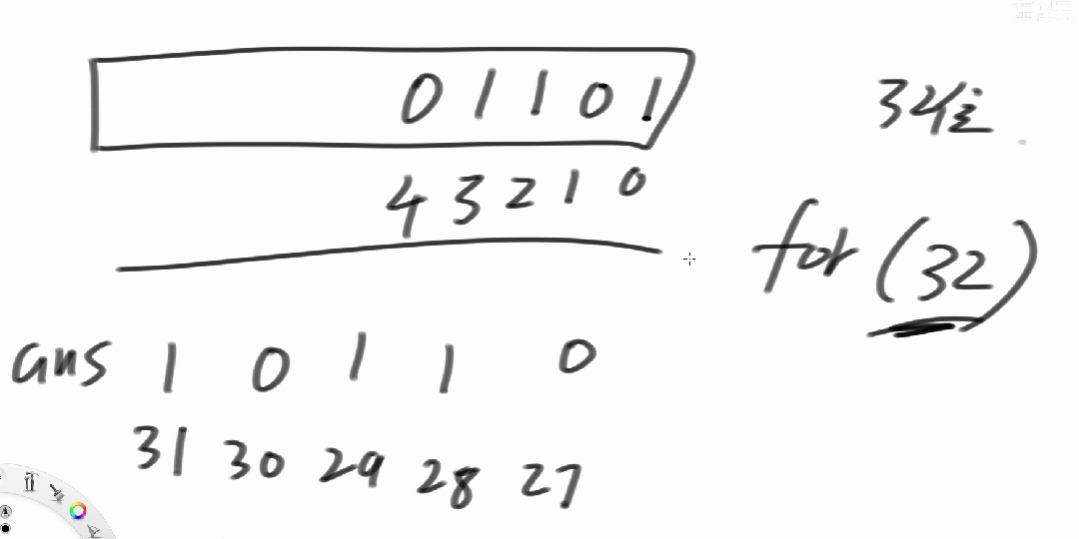 0 1 1 0 1
4 3 2 1 0
32位
for (32)
ans 1 0 1 1 0
31 30 29 28 27